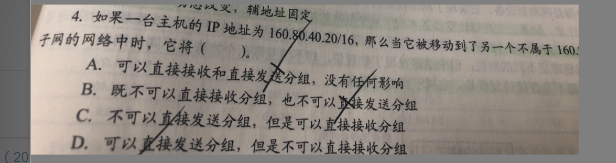 变，辅地址固定
4. 如果一台主机的 IP 地址为 160.80.40.20/16，那么当它被移动到了另一个不属于 160.
子网的网络中时，它将（ ）。
A. 可以直接接收和直接发送分组，没有任何影响
B. 既不可以直接接收分组，也不可以直接发送分组
C. 不可以直接发送分组，但是可以直接接收分组
D. 可以直接发送分组，但是不可以直接接收分组
(20